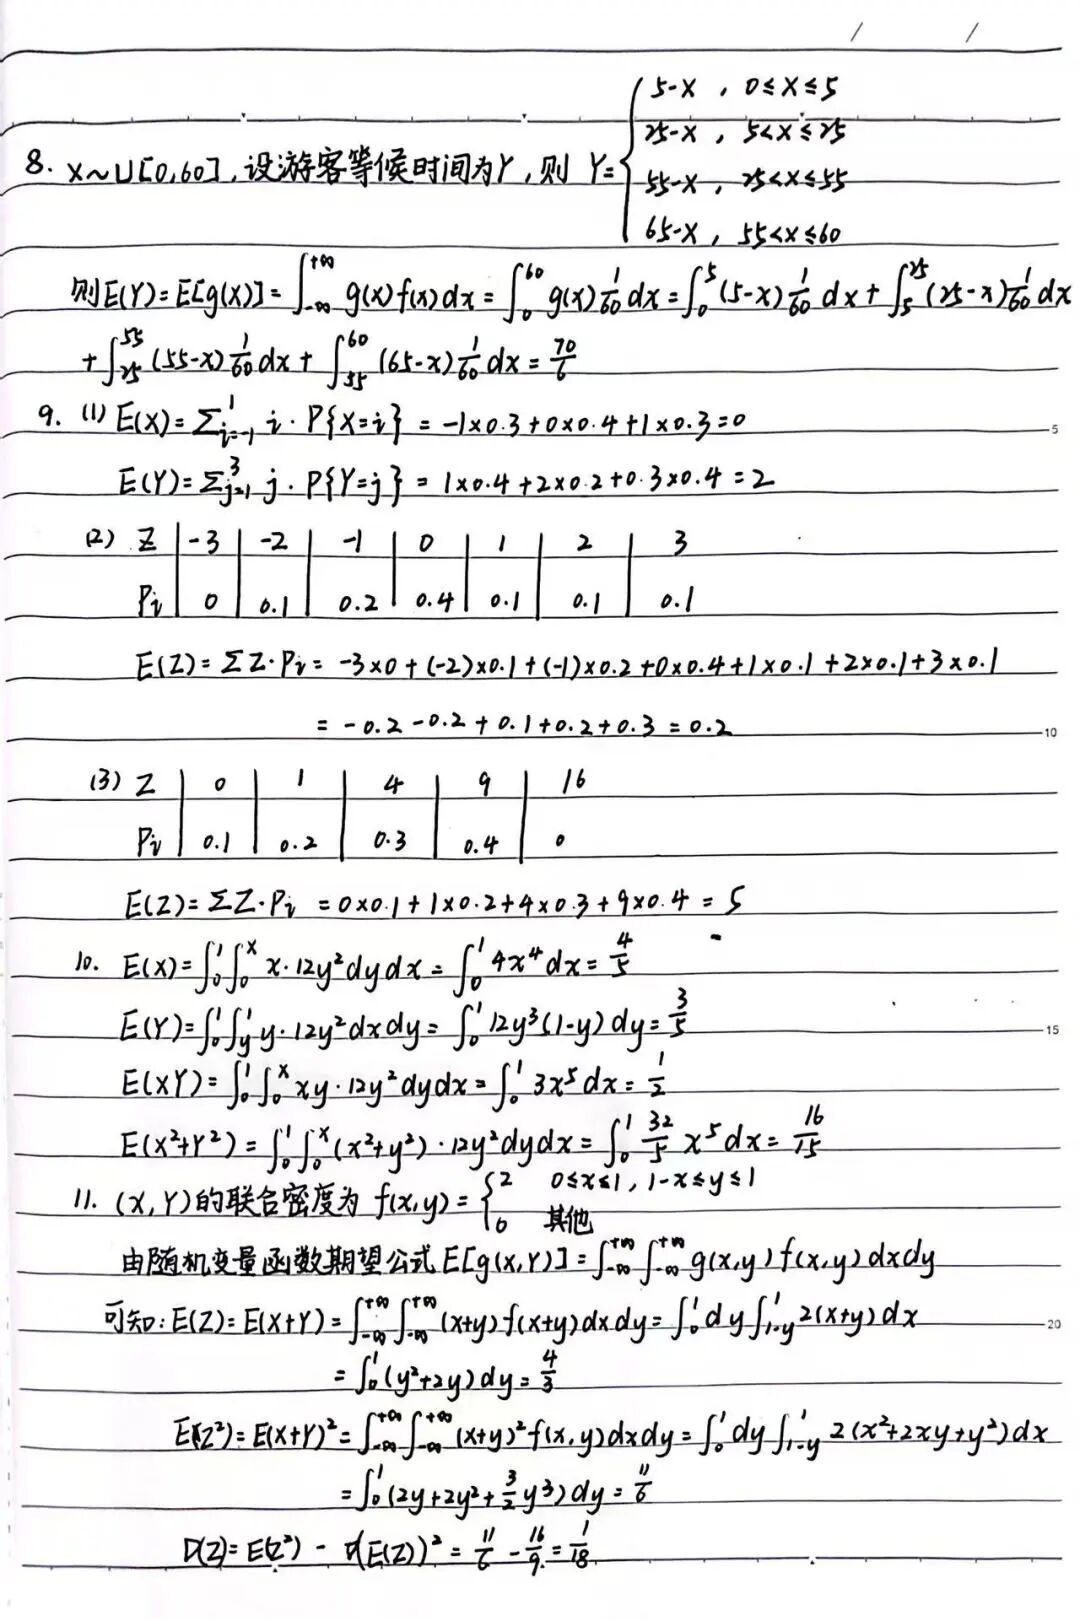 8. X~U[0,60],设游客等候时间为Y,则 Y={5-X , 0≤X≤5
25-X , 5<X≤25
55-X , 25<X≤55
65-X , 55<X≤60
则E(Y)=E[g(X)]=∫_{-∞}^{+∞} g(x)f(x)dx=∫_0^{60} g(x)1/60 dx=∫_0^5(5-x)1/60 dx+∫_5^{25}(25-x)1/60 dx
+∫_{25}^{55}(55-x)1/60 dx+∫_{55}^{60}(65-x)1/60 dx=70/6
9. (1) E(X)=Σ_{i=-1}^1 i·P{X=i}=-1×0.3+0×0.4+1×0.3=0
E(Y)=Σ_{j=1}^3 j·P{Y=j}=1×0.4+2×0.2+0.3×0.4=2
(2) Z | -3 | -2 | -1 | 0 | 1 | 2 | 3
Pi | 0 | 0.1 | 0.2 | 0.4 | 0.1 | 0.1 | 0.1
E(Z)=ΣZ·Pi=-3×0+(-2)×0.1+(-1)×0.2+0×0.4+1×0.1+2×0.1+3×0.1
=-0.2-0.2+0.1+0.2+0.3=0.2
(3) Z | 0 | 1 | 4 | 9 | 16
Pi | 0.1 | 0.2 | 0.3 | 0.4 | 0
E(Z)=ΣZ·Pi=0×0.1+1×0.2+4×0.3+9×0.4=5
10. E(X)=∫_0^1∫_0^x x·12y²dydx=∫_0^1 4x⁴dx=4/5
E(Y)=∫_0^1∫_y^1 y·12y²dxdy=∫_0^1 12y³(1-y)dy=3/5
E(XY)=∫_0^1∫_0^x xy·12y²dydx=∫_0^1 3x⁵dx=1/2
E(X²+Y²)=∫_0^1∫_0^x(x²+y²)·12y²dydx=∫_0^1 32/5 x⁵dx=16/15
11. (X,Y)的联合密度为 f(x,y)={2 0≤x≤1,1-x≤y≤1
0 其他
由随机变量函数期望公式E[g(X,Y)]=∫_{-∞}^{+∞}∫_{-∞}^{+∞}g(x,y)f(x,y)dxdy
可知:E(Z)=E(X+Y)=∫_{-∞}^{+∞}∫_{-∞}^{+∞}(x+y)f(x+y)dxdy=∫_0^1dy∫_{1-y}^1 2(x+y)dx
=∫_0^1(y²+2y)dy=4/3
E(Z²)=E(X+Y)²=∫_{-∞}^{+∞}∫_{-∞}^{+∞}(x+y)²f(x,y)dxdy=∫_0^1dy∫_{1-y}^1 2(x²+2xy+y²)dx
=∫_0^1(2y+2y²+3/2y³)dy=11/6
D(Z)=E(Z²)-(E(Z))²=11/6-16/9=1/18
5
10
15
20